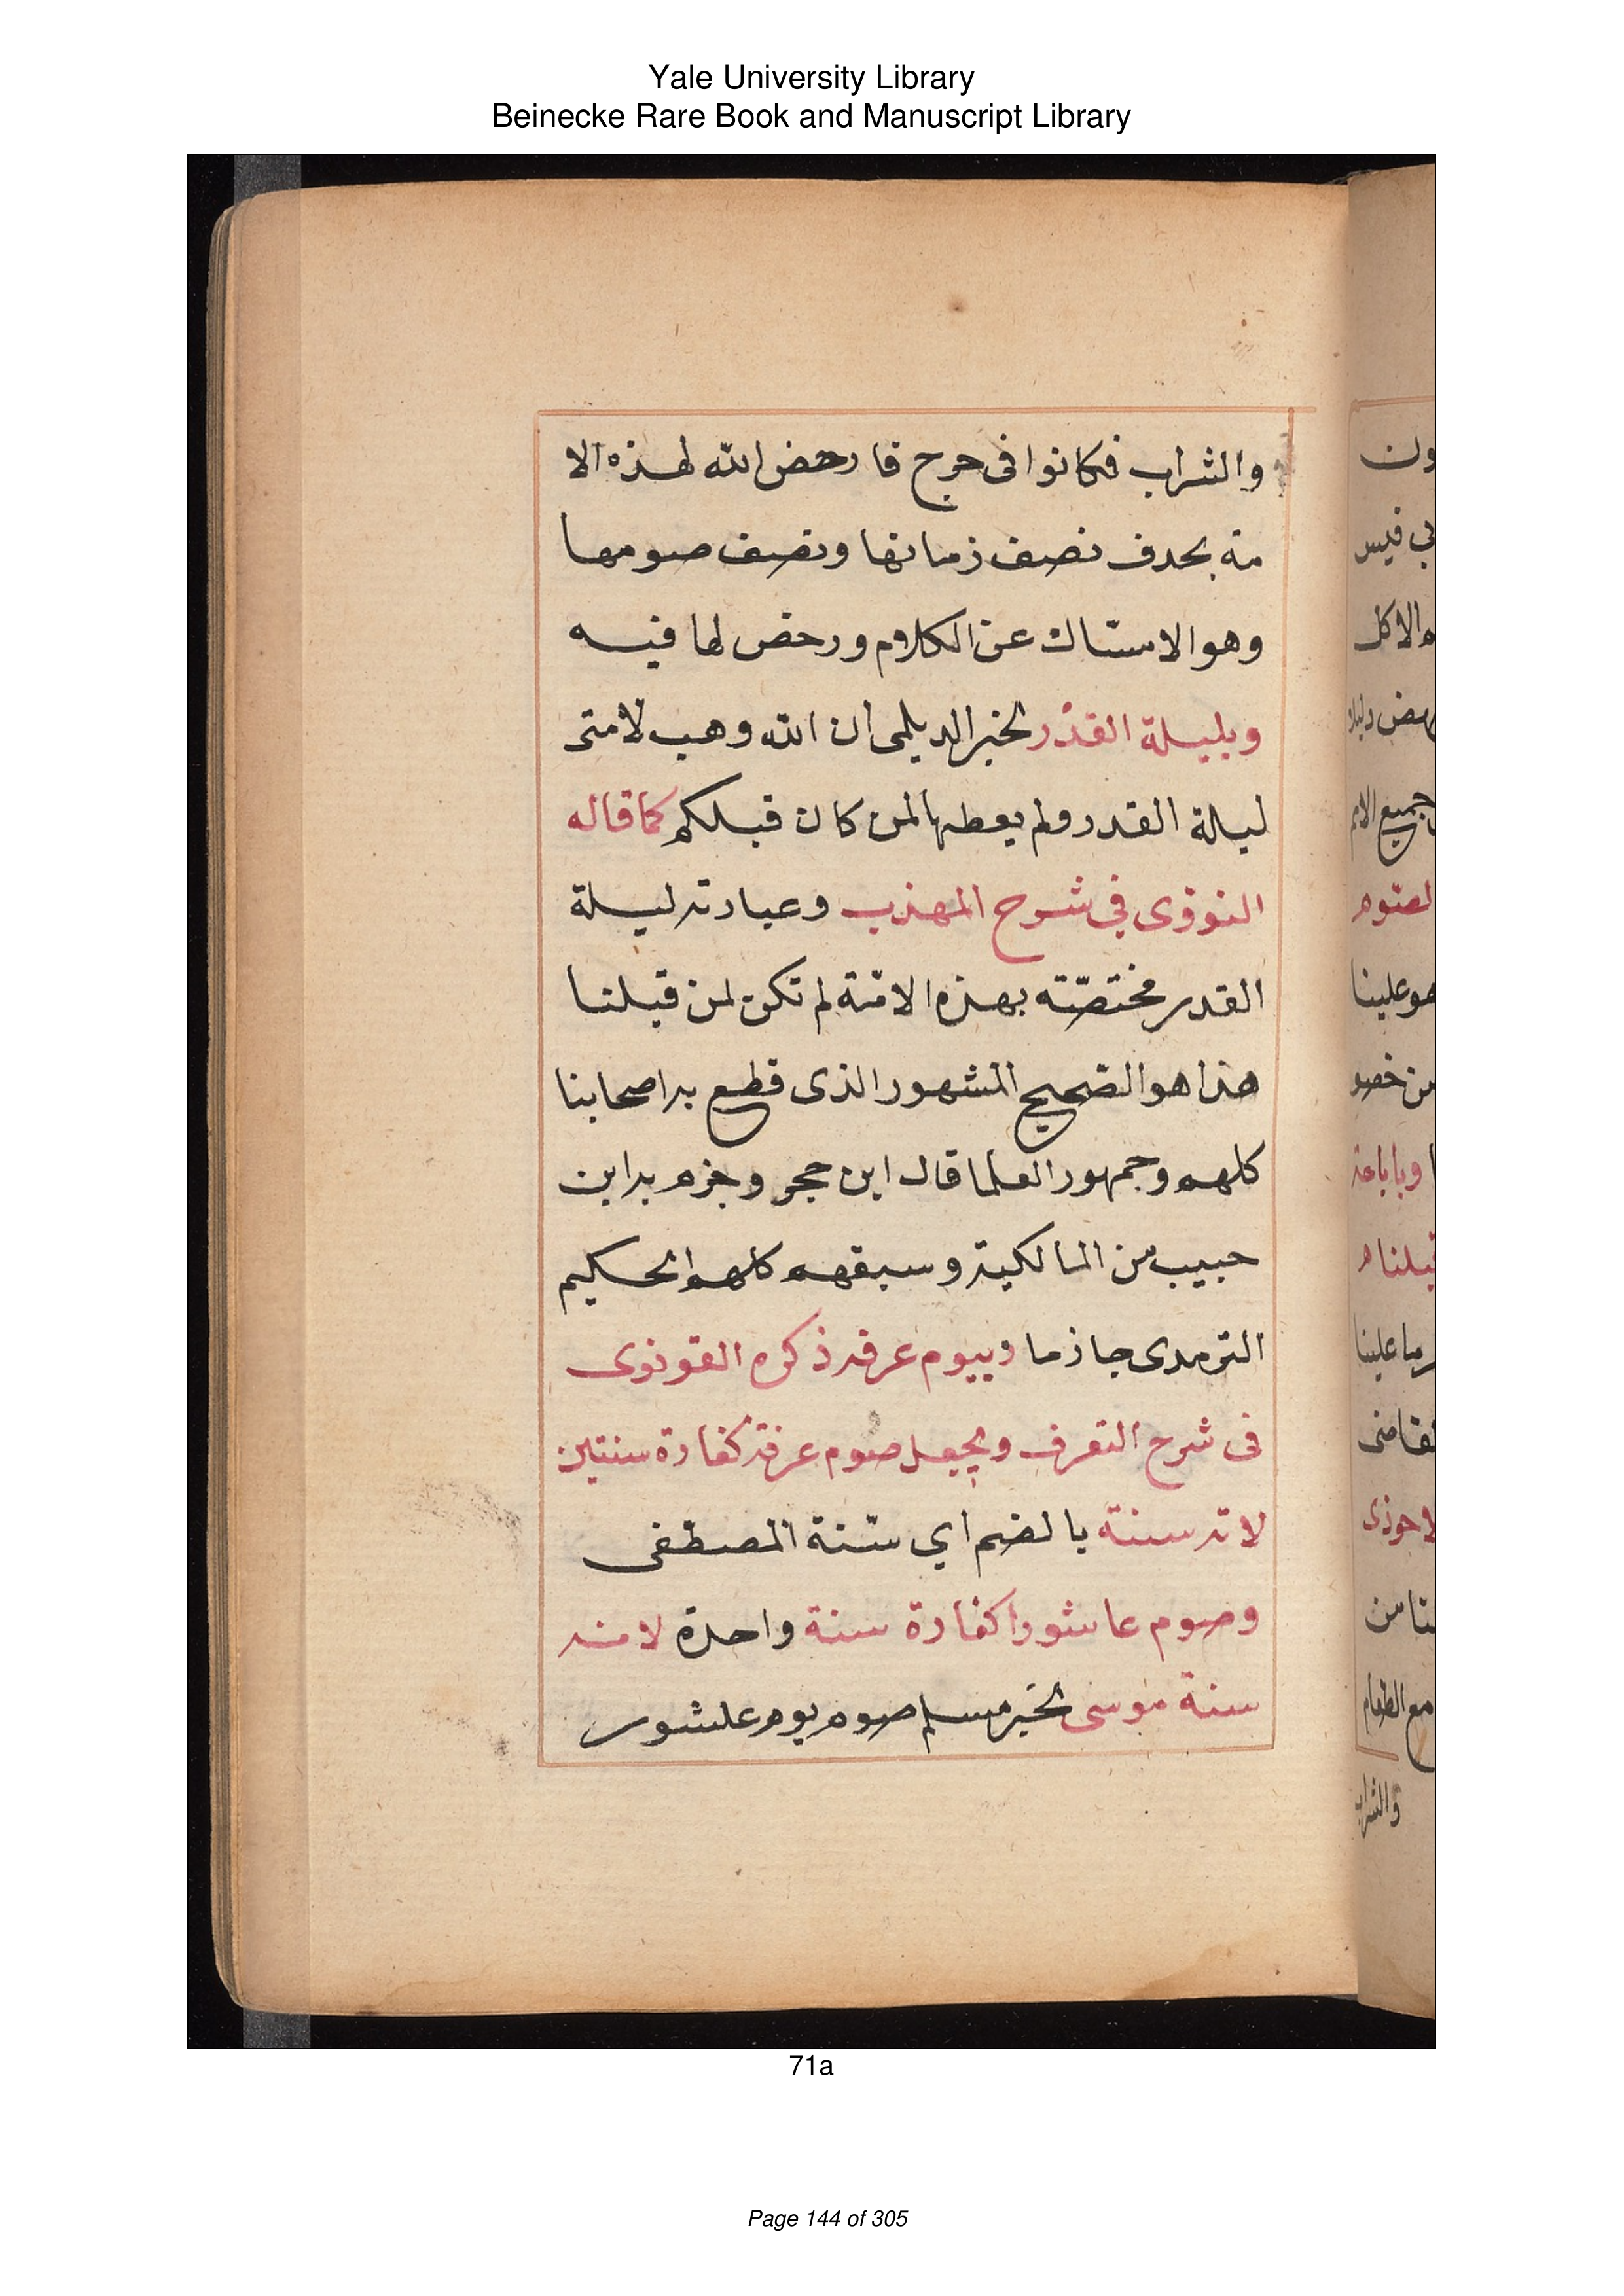 Yale University Library
Beinecke Rare Book and Manuscript Library
والشراب فكانوا فى حرج فا رحض الله لهذه الا
مة بحدف نصف زمانها ونصف صومها
وهو الامساك عن الكلام ورحض لها فيه
وبليلة القدر لخبر الديلمى ان الله وهب لامتى
ليلة القدر ولم يعطها لمن كان قبلكم كما قاله
النووى في شرح المهذب وعبارته ليلة
القدر مختصّة بهذه الامّة لم تكن لمن قبلنا
هذا هو الصّحيح المشهور الذى قطع به اصحابنا
كلهم وجمهور العلما قال ابن حجر وجزم به ابن
حبيب من المالكية وسبقهم كلهم الحكيم
الترمدى جازما وبيوم عرفه ذكره القونوى
فى شرح التعرف ويجعل صوم عرفة كفارة سنتين
لانه سنة بالضم اي سنّة المصطفى
وصوم عاشورا كفارة سنة واحدة لانه
سنة موسى لخبر مسلم صوم يوم عاشور
ون
بي قيس
الاكل
جميع الامم
لصّوم
هو علينا
قبلنا
مع الطعام
والشراب
71a
Page 144 of 305